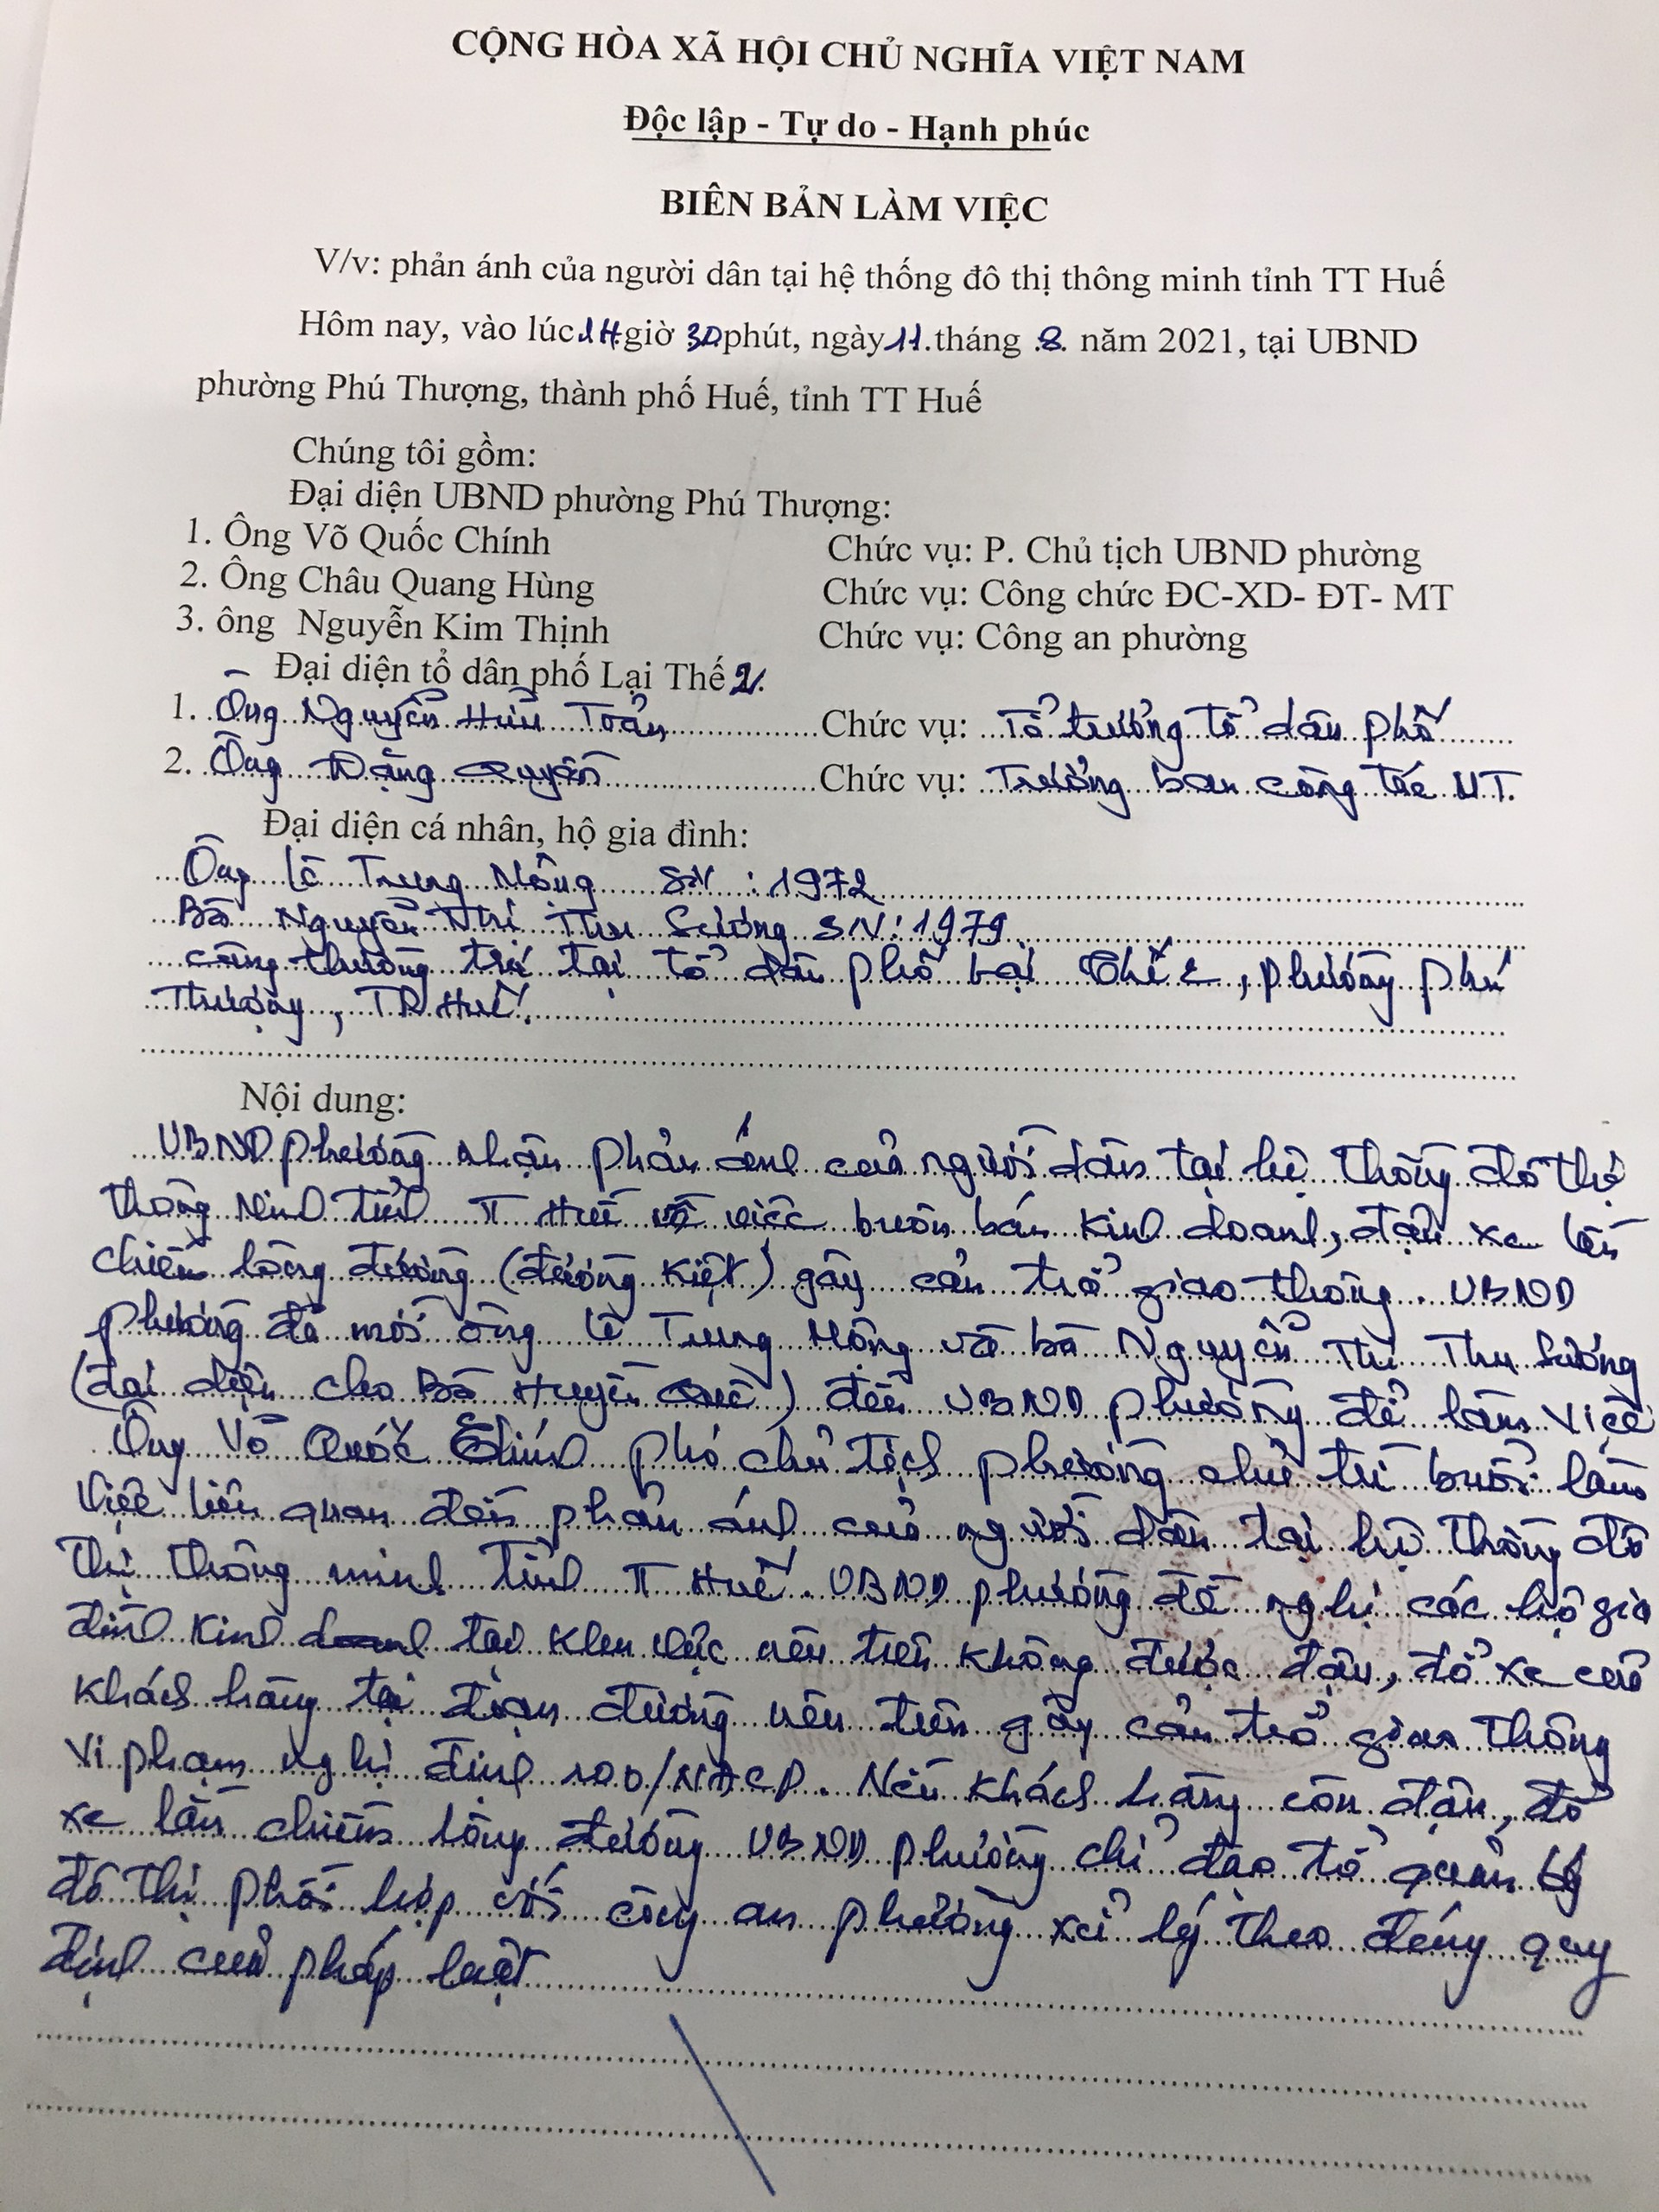 CỘNG HÒA XÃ HỘI CHỦ NGHĨA VIỆT NAM
Độc lập - Tự do - Hạnh phúc
BIÊN BẢN LÀM VIỆC
V/v: phản ánh của người dân tại hệ thống đô thị thông minh tỉnh TT Huế
Hôm nay, vào lúc 14 giờ 30 phút, ngày 11 tháng 8 năm 2021, tại UBND
phường Phú Thượng, thành phố Huế, tỉnh TT Huế
Chúng tôi gồm:
Đại diện UBND phường Phú Thượng:
1. Ông Võ Quốc Chính Chức vụ: P. Chủ tịch UBND phường
2. Ông Châu Quang Hùng Chức vụ: Công chức ĐC-XD- ĐT- MT
3. ông Nguyễn Kim Thịnh Chức vụ: Công an phường
Đại diện tổ dân phố Lại Thế 2.
1. Ông Nguyễn Hữu Toản Chức vụ: Tổ trưởng tổ dân phố
2. Ông Đặng Quyền Chức vụ: Trưởng ban công tác MT.
Đại diện cá nhân, hộ gia đình:
Ông Lê Trung Mộng SN: 1972
Bà Nguyễn Thị Thu Sương SN: 1979
cùng thường trú tại tổ dân phố Lại Thế 2, phường Phú
Thượng, TP Huế.
Nội dung:
UBND phường nhận phản ánh của người dân tại hệ thống đô thị
thông minh tỉnh TT Huế về việc buôn bán kinh doanh, đậu xe lấn
chiếm lòng đường (đường kiệt) gây cản trở giao thông. UBND
phường đã mời ông Lê Trung Mộng và bà Nguyễn Thị Thu Sương
(đại diện cho Bà Huyền) đến UBND phường để làm việc
Ông Võ Quốc Chính phó chủ tịch phường chủ trì buổi làm
việc liên quan đến phản ánh của người dân tại hệ thống đô
thị thông minh tỉnh TT Huế. UBND phường đề nghị các hộ gia
đình kinh doanh tại khu vực nêu trên không được đậu, đổ xe của
khách hàng tại đoạn đường nêu trên gây cản trở giao thông
vi phạm nghị định 100/NĐCP. Nếu khách hàng còn đậu, đổ
xe lấn chiếm lòng đường UBND phường chỉ đạo tổ quản lý
đô thị phối hợp với công an phường xử lý theo đúng quy
định của pháp luật